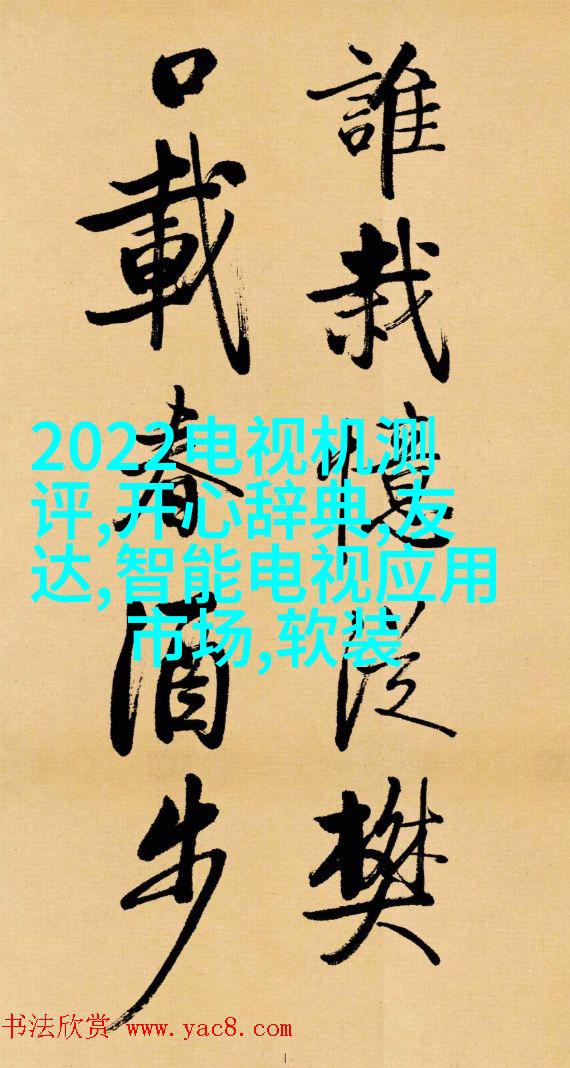 誰栽憶從樊
口載春酒步
2022电视机测
评,开心辞典,友
达,智能电视应用
市场,软装
书法欣赏 www.yac8.com